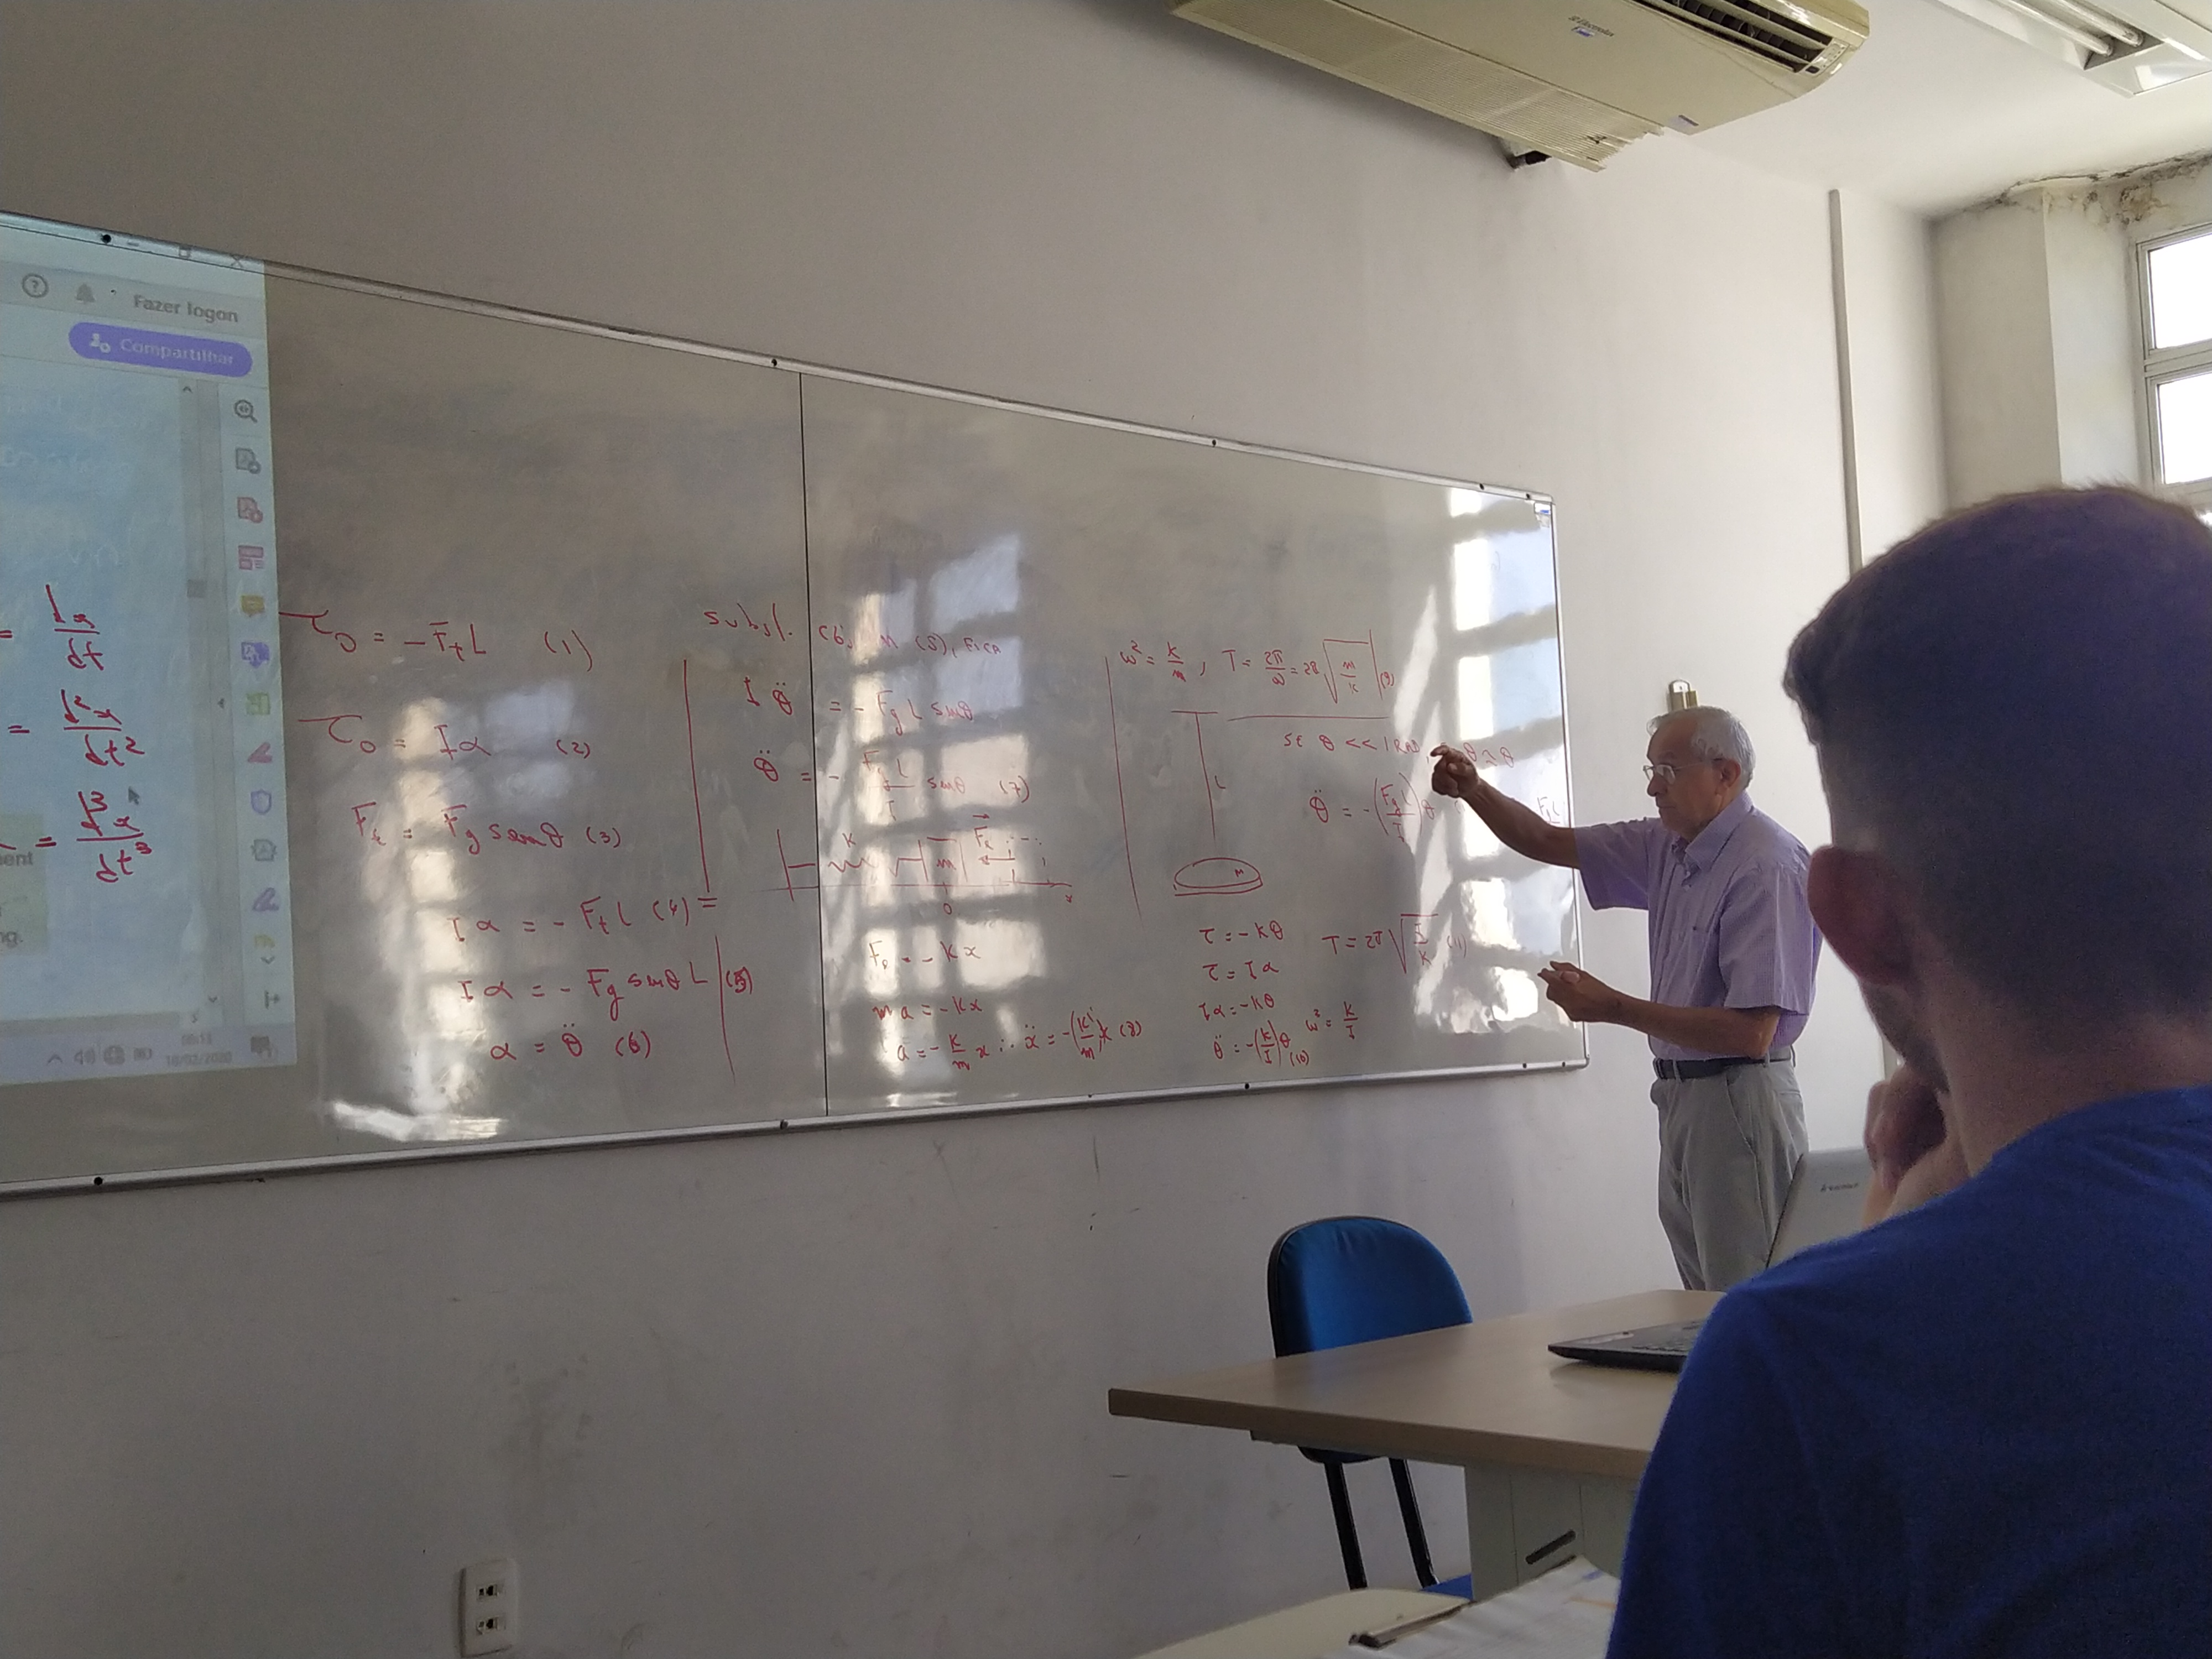 Electrolux
Fazer logon
Compartilhar
= dx/dt
= d²x/dt²
= d³x/dt³
ent
ng.
08:13
18/02/2020
τ₀ = -F_t L (1)
τ₀ = Iα (2)
F_t = F_g senθ (3)
Iα = -F_t L (4) =
Iα = -F_g senθ L (5)
α = θ̈ (6)
subst. (6) (5), FICA
I θ̈ = -F_g L senθ
θ̈ = - F_g L / I senθ (7)
K
m
F_R
0
x
F_R = -Kx
ma = -Kx
a = -K/m x ∴ ẍ = -(K/m)x (8)
ω² = K/m, T = 2π/ω = 2π√(m/K) (9)
L
M
SE θ << 1 RAD θ ≈ θ
θ̈ = -(F_g L/I)θ
F_g L
τ = -Kθ
τ = Iα
Iα = -Kθ
θ̈ = -(K/I)θ (10) ω² = K/I
T = 2π√(I/K) (11)